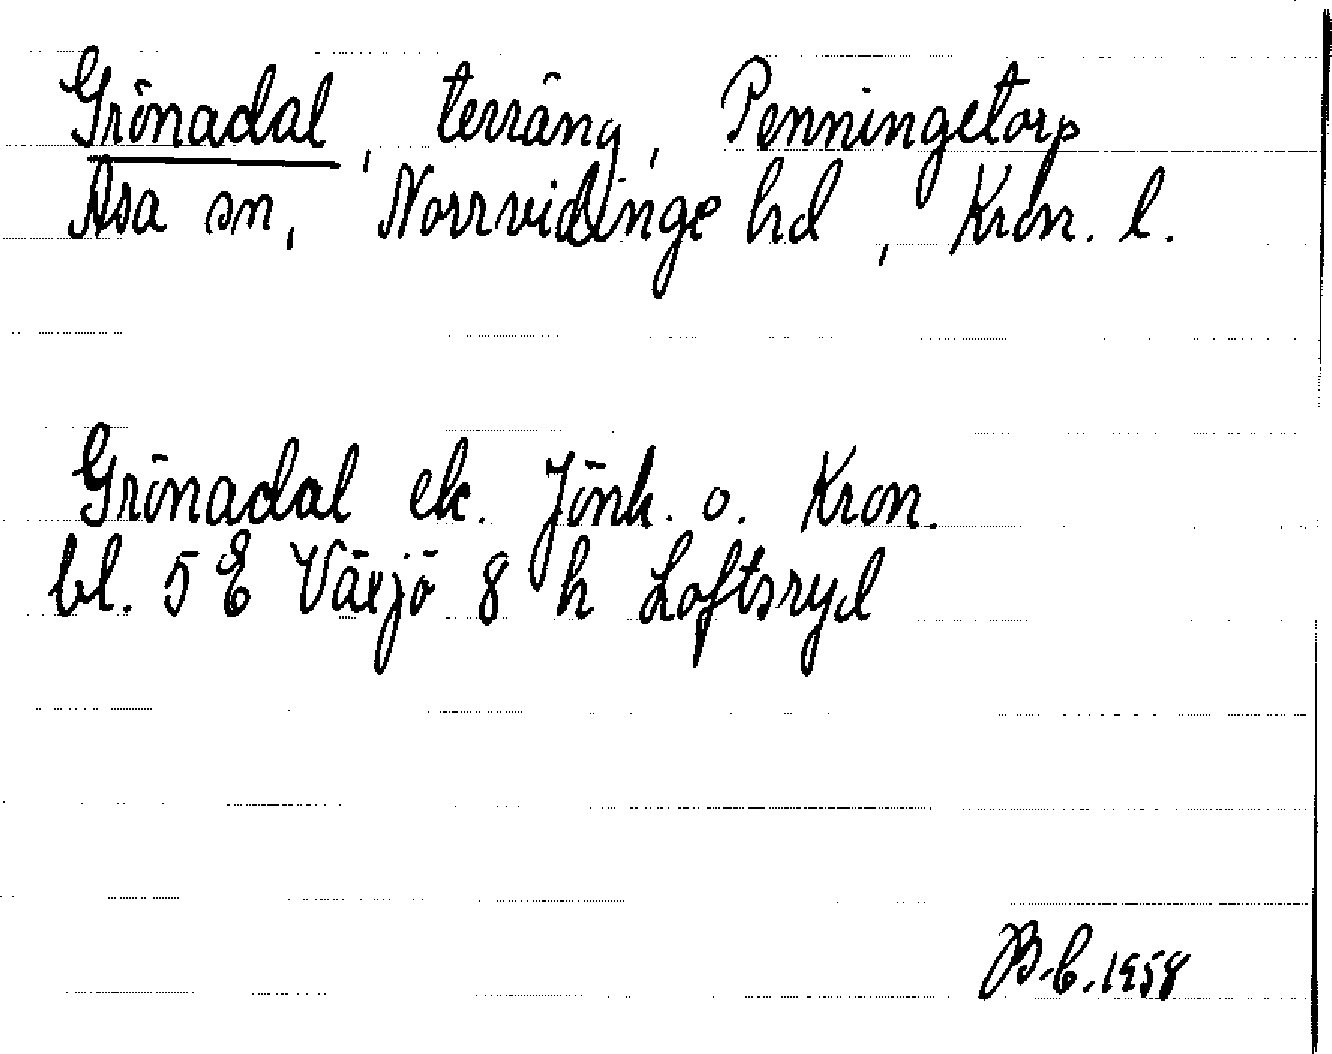 Grönadal, terräng, Penningetorp
Asa sn, Norrvidinge hd, Kron. l.
Grönadal ek. Jönk. o. Kron.
bl. 5 E Växjö 8 h Loftsryd
B-b. 1958